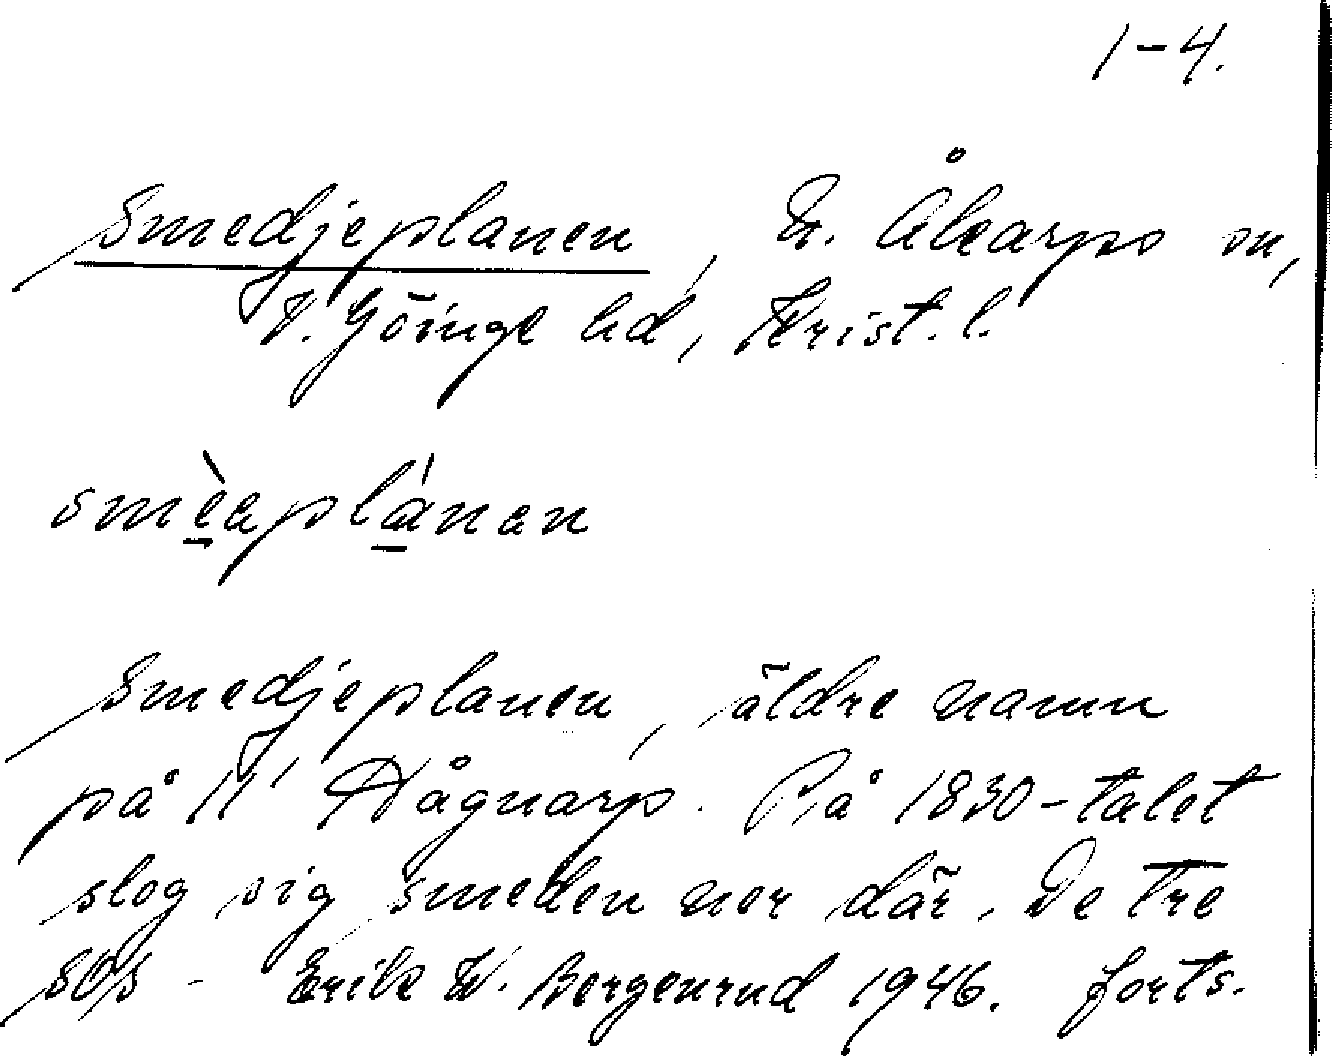 1-4.
Smedjeplanen, N. Åkarps sn,
V. Göinge hd, Krist. l.
smèaplánan
Smedjeplanen, äldre namn
på 11' Hågnarp. På 1830-talet
slog sig smeden ner där. De tre
SOS - Erik W. Bergenrud 1946. forts.